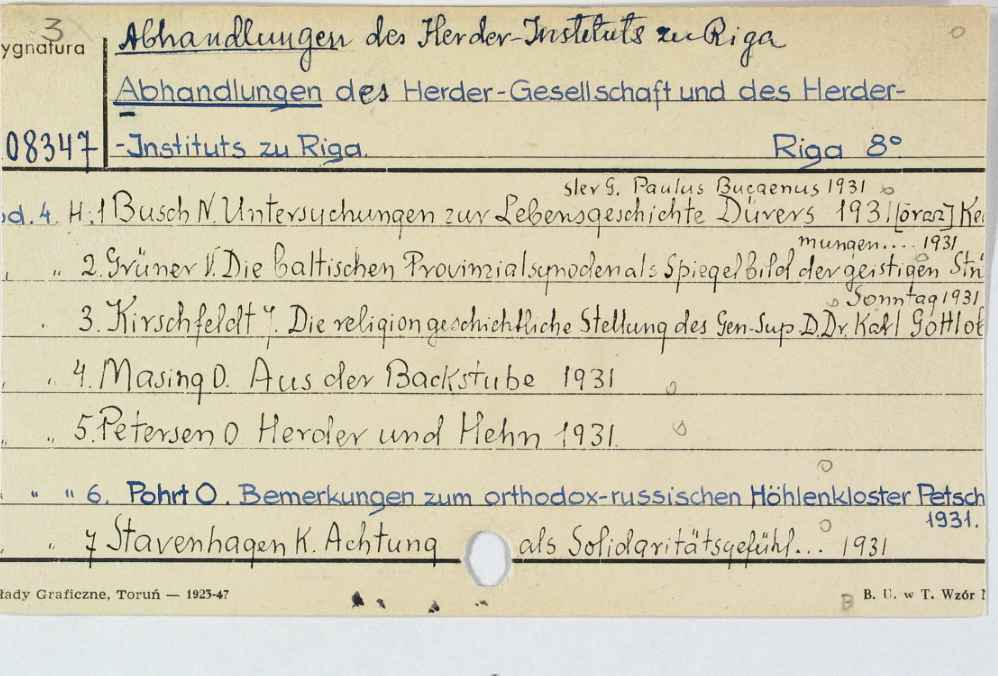 3
ygnatura
Abhandlungen des Herder-Instituts zu Riga
Abhandlungen des Herder-Gesellschaft und des Herder-
08347 -Instituts zu Riga. Riga 8°
sler G. Paulus Bucaenus 1931
bd. 4. H. 1 Busch N. Untersuchungen zur Lebensgeschichte Dürers 1931 [oraz] Ke
mungen.... 1931
" 2. Grüner V. Die baltischen Provinzialsynoden als Spiegelbild der geistigen Strö
Sonntag 1931
3. Kirschfeldt J. Die religiongeschichtliche Stellung des Gen-Sup. D. Dr. Karl Gottlob
" 4. Masing O. Aus der Backstube 1931
" 5. Petersen O Herder und Hehn 1931.
" " 6. Pohrt O. Bemerkungen zum orthodox-russischen Höhlenkloster Petsch
1931.
" 7 Stavenhagen K. Achtung als Solidaritätsgefühl... 1931
łady Graficzne, Toruń — 1923-47 B. U. w T. Wzór